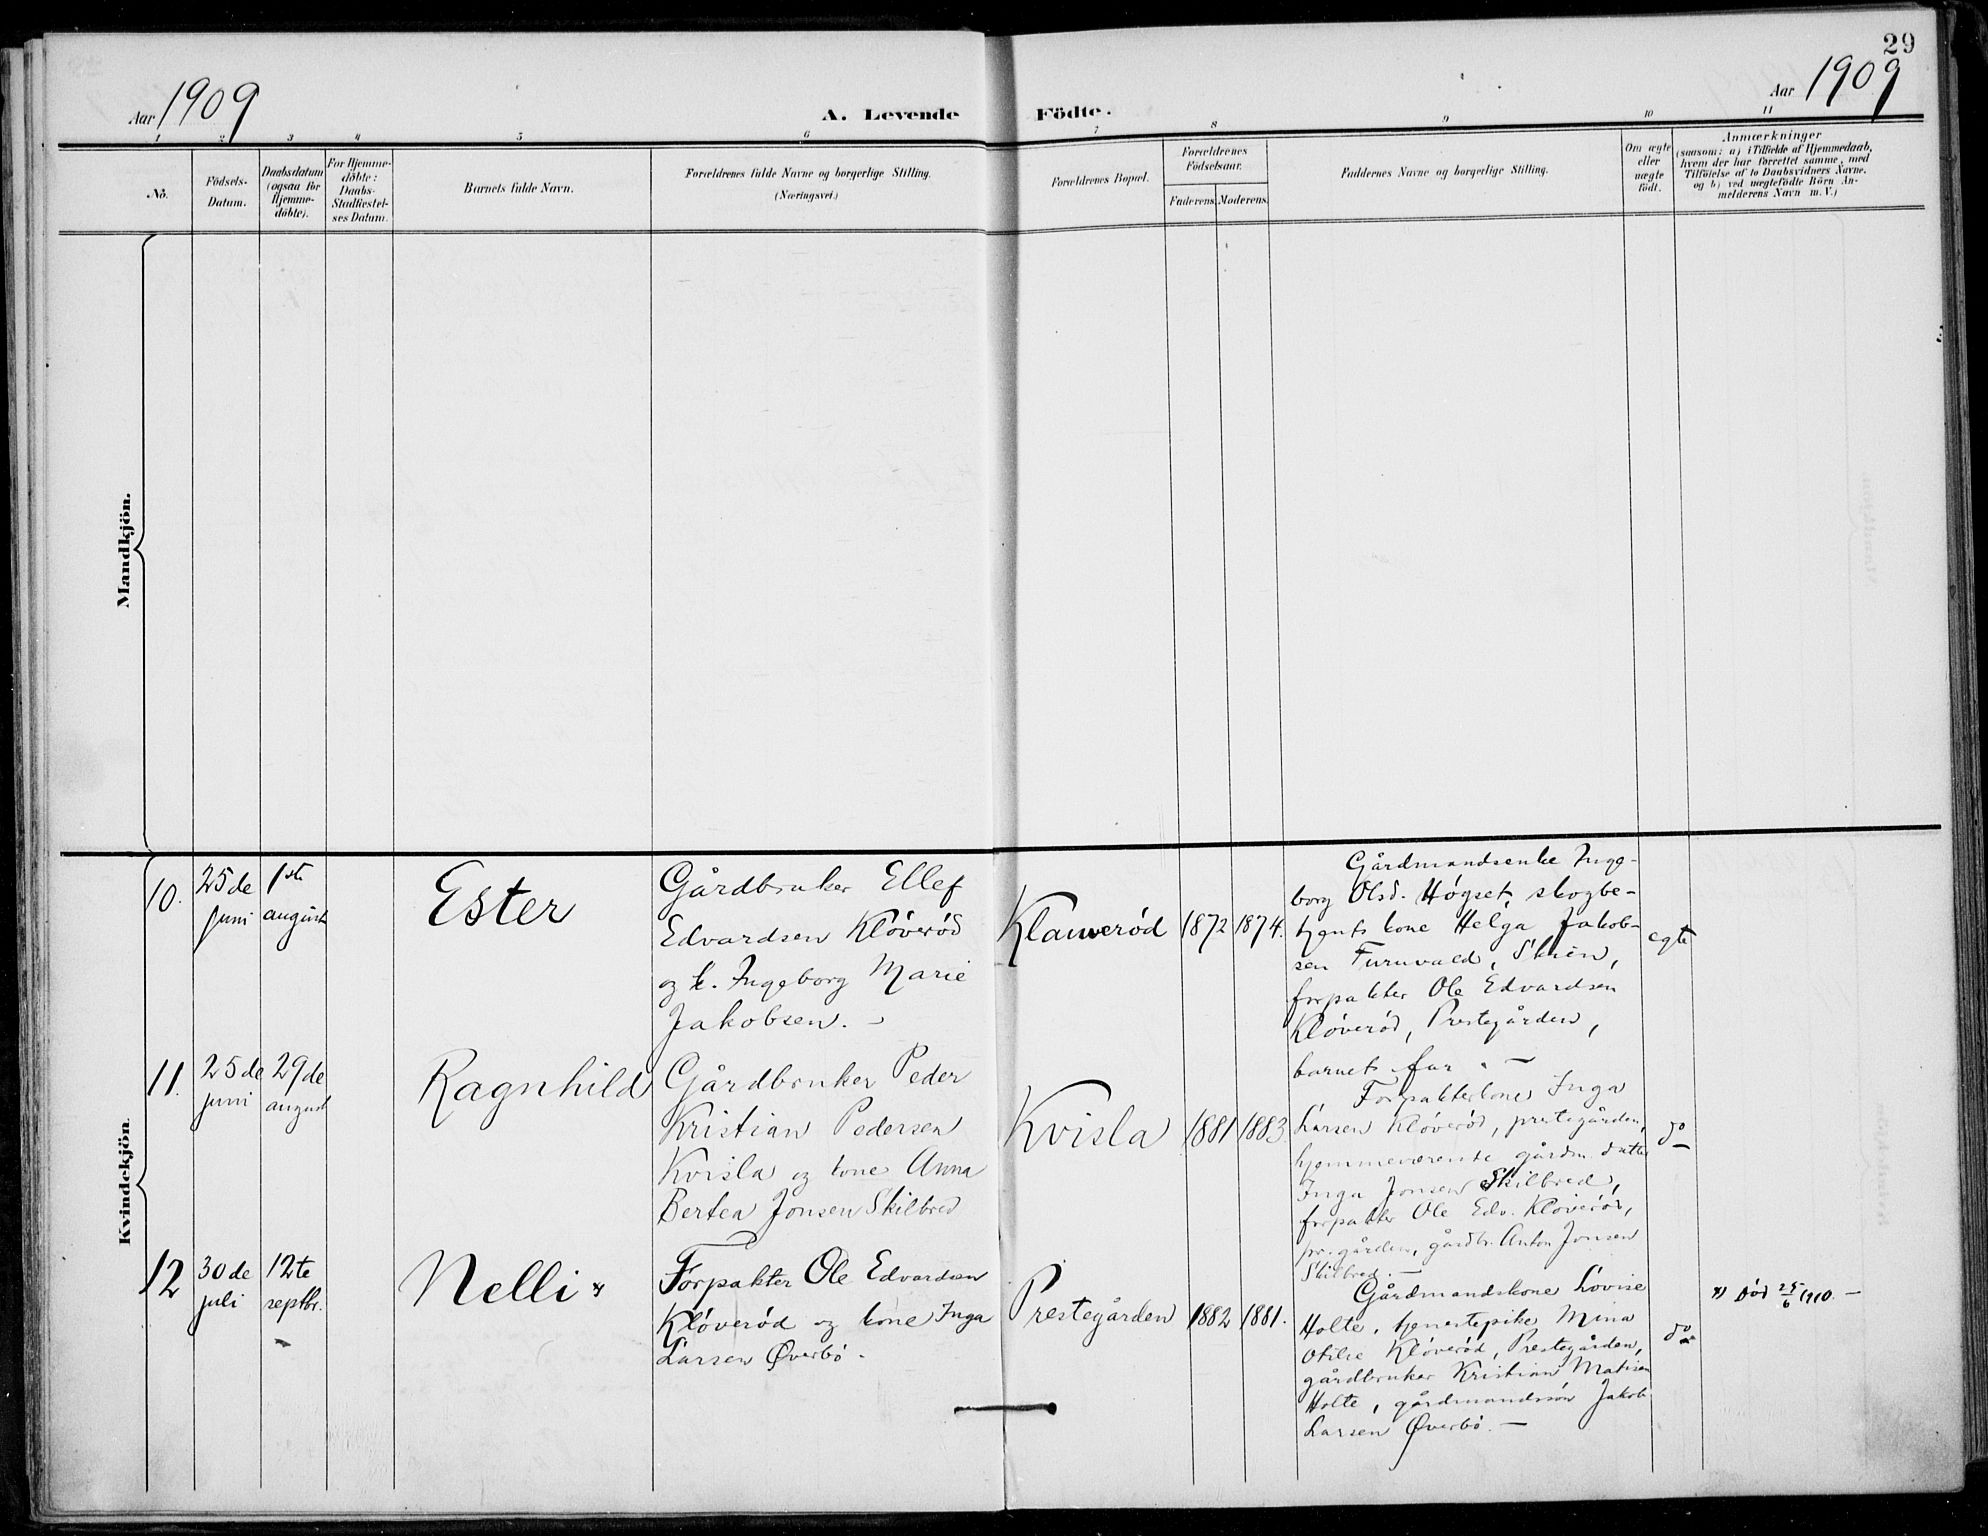 29
Aar 1909
A. Levende Födte.
Aar 1909
1 2 3 4 5 6 7 8 9 10 11
No.
Födsels-
Datum.
Daabsdatum
(ogsaa for
Hjemme-
döbte).
For Hjemme-
döbte:
Daabs-
Stadfæstel-
ses Datum.
Barnets fulde Navn.
Forældrenes fulde Navne og borgerlige Stilling.
(Næringsvei.)
Forældrenes Bopæl.
Forældrenes
Födselsaar.
Faderens. Moderens.
Faddernes Navne og borgerlige Stilling.
Om ægte
eller
uægte
födt.
Anmærkninger
(saasom: a) i Tilfælde af Hjemmedaab,
hvem der har forrettet samme, med
Tilföielse af to Daabsvidners Navne.
og b) ved uægtefödte Börn An-
melderens Navn m. V.)
Mandkjön.
Kvindekjön.
10.
25de
juni
1ste
august
Ester
Gårdbruker Ellef
Edvardsen Kløverød
og k. Ingeborg Marie
Jakobsen. -
Klauverød
1872
1874.
Gårdmandsenke Inge-
borg Olsd. Høgset, skogbe-
tjents kone Helga Jakob-
sen Furuvald, Skien,
forpakter Ole Edvardsen
Kløverød, Prestegården,
barnets far. -
egte
11.
25de
juni
29de
august
Ragnhild
Gårdbruker Peder
Kristian Pedersen
Kvisla og kone Anna
Bertea Jonsen Skilbred
Kvisla
1881
1883.
Forpakterkone Inga
Larsen Kløverød, prestegården,
hjemmeværende gårdm. datter
Inga Jonsen Skilbred,
forpakter Ole Edv. Kløverød,
pr.gården, gårdbr. Anton Jonsen
Skilbred. -
do
12
30de
juli
12te
septbr.
Nelli x
Forpakter Ole Edvardsen
Kløverød og kone Inga
Larsen Øverbø.
Prestegården
1882
1881.
Gårdmandskone Lovise
Holte, tjenestepike Mina
Otilie Kløverød, Prestegården,
gårdbruker Kristian Matisen
Holte, gårdmandssøn Jakob
Larsen Øverbø. -
do
x) Død 25/6 1910. -